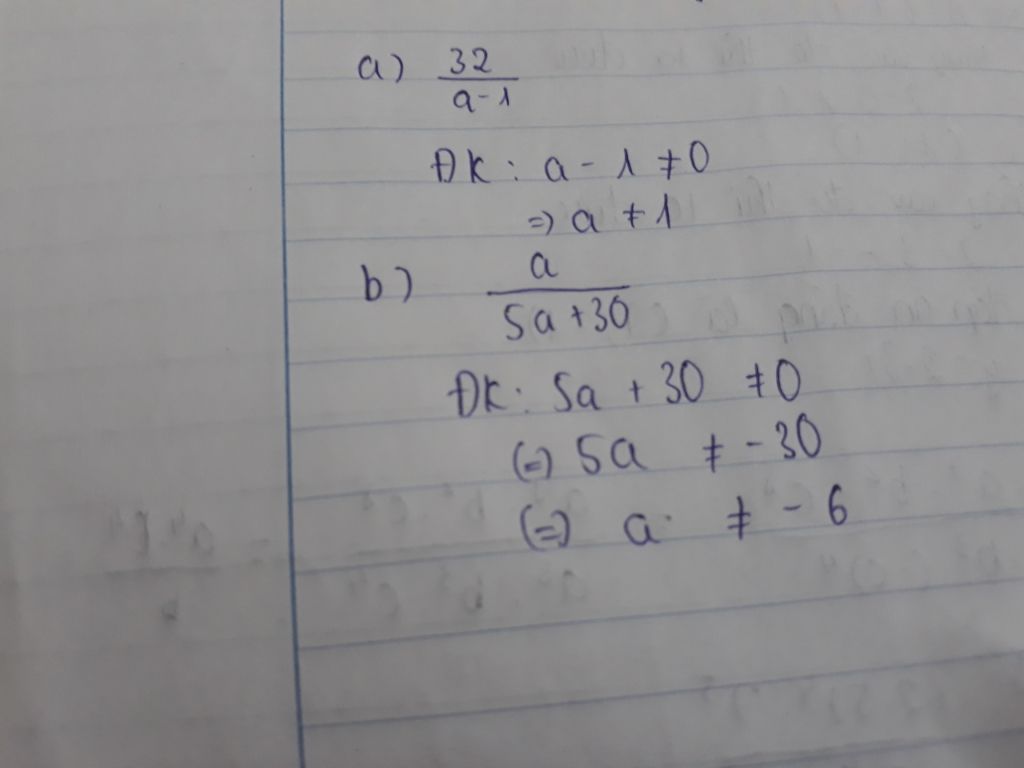 a) 32/(a-1)
ĐK: a - 1 ≠ 0
=> a ≠ 1
b) a/(5a+30)
ĐK: 5a + 30 ≠ 0
(=) 5a ≠ -30
(=) a ≠ - 6